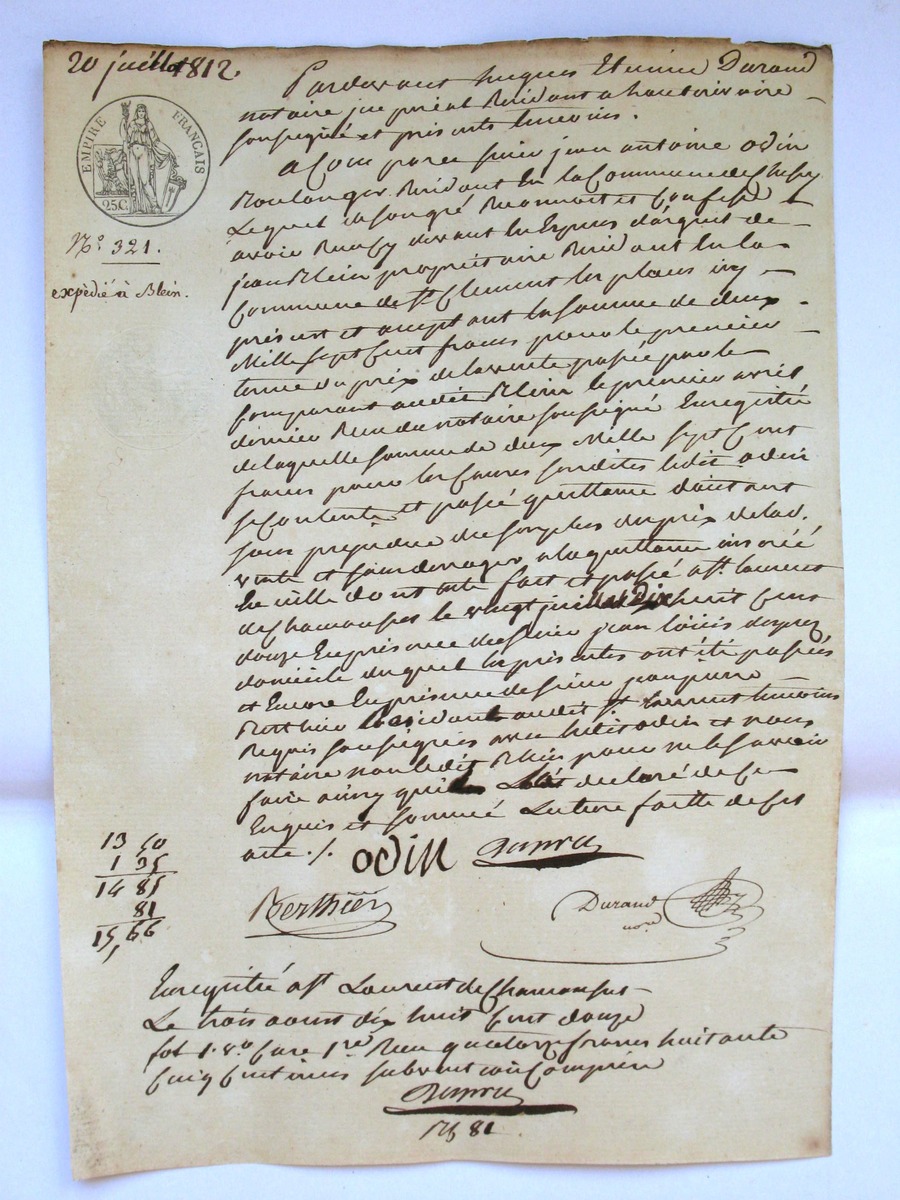 20 juillet 1812.
EMPIRE FRANÇAIS
25 C.
N.º 321.
expèdié à Blein.
Pardevant hugues Etienne Durand
notaire imperial Residant a hauterivoire
soussigné et presents temoins.
a Comparu sieur jean antoine odin
Boulanger Residant en la Commune de
Lequel de son gré Reconnoit et Confesse
avoir Reçu devant en Especes d'argent de
jean Blein propriétaire Residant en la
Commune de St Clement les places icy
présent et aceptant la somme de deux
Mille sept Cent francs pour le premier
terme du prix de la vente passée par le
Comparant audit Blein le premier avril
dernier Reçu du notaire soussigné Enregistré
de laquelle somme de deux Mille sept Cent
francs pour les Causes susdites ledit odin
se Contente et passé quittance d'autant
sans prejudice du surplus du prix de lad.
vente et sans deroger a la quittance inserée
En icelle dont acte fait et passé a St laurent
de Chamousset le vingt juillet Dix huit Cent
douze En présence de sieur jean louis dupré
domicile duquel les présentes ont été passées
et Encore En présence de sieur jean pierre
Berthier Residant audit St laurent temoins
Requis soussignés avec ledit odin et nous
notaire non ledit Blein pour ne le savoir
faire ainsy qu'il L'at declaré de Ce
Enquis et sommé Lecture faite de cet
acte ./.
odin
Dupré
13 50
1 35
14 85
81
15,66
Berthier
Durand
nore
Enregistré a St Laurent de Chamousset
Le trois aoust dix huit Cent douze
fol 1. vo Case 1re Reçu quatorze francs huitante
Cinq Centimes subvention Comprise
Dupré
81